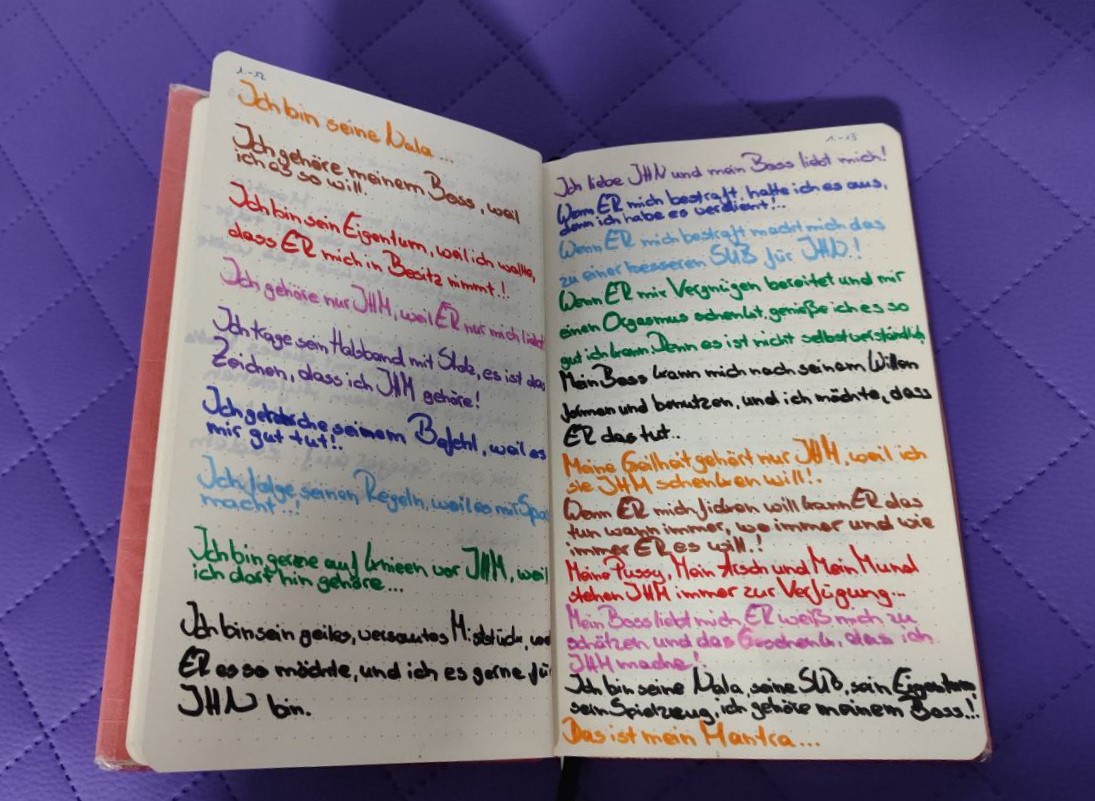 1-12
Ich bin seine Nala...
Ich gehöre meinem Boss, weil
ich es so will.
Ich bin sein Eigentum, weil ich wollte,
dass ER mich in Besitz nimmt!!
Ich gehöre nur IHM, weil ER nur mich liebt
Ich trage sein Halsband mit Stolz, es ist das
Zeichen, dass ich IHM gehöre!
Ich gehorche seinem Befehl, weil es
mir gut tut!!
Ich folge seinen Regeln, weil es mir Spa
macht...!
Ich bin gerne auf Knieen vor IHM, weil
ich dort hin gehöre...
Ich bin sein geiles, versautes Miststück, we
ER es so möchte, und ich es gerne für
IHN bin.
1-13
Ich liebe IHN und mein Boss liebt mich!
Wenn ER mich bestraft, halte ich es aus,
denn ich habe es verdient!..
Wenn ER mich bestraft macht mich das
zu einer besseren SUB für IHN.!
Wenn ER mir Vergnügen bereitet und mir
einen Orgasmus schenkt, genieße ich es so
gut ich kann. Denn es ist nicht selbstverständlich
Mein Boss kann mich nach seinem Willen
formen und benutzen, und ich möchte, dass
ER das tut..
Meine Geilheit gehört nur IHM, weil ich
sie IHM schenken will!.
Wenn ER mich ficken will kann ER das
tun wann immer, wo immer und wie
immer ER es will.!
Meine Pussy, Mein Arsch und Mein Mund
stehen IHM immer zur Verfügung...
Mein Boss liebt mich, ER weiß mich zu
schätzen und das Geschenk, das ich
IHM mache!
Ich bin seine Nala, seine SUB, sein Eigentum
sein Spielzeug, ich gehöre meinem Boss.!!
Das ist mein Mantra...